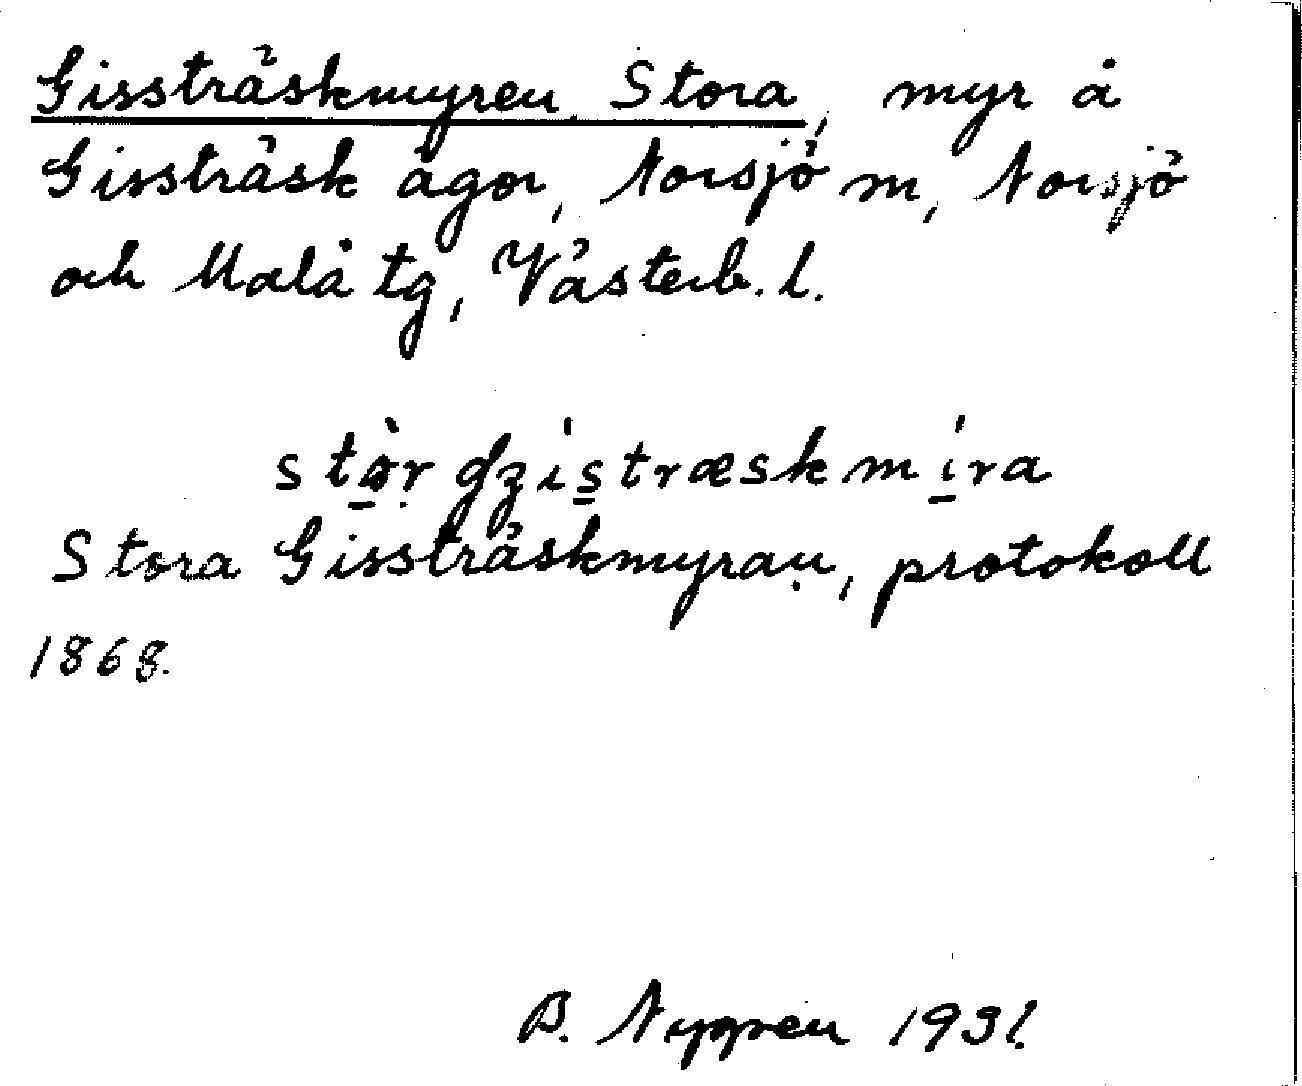 Gissträskmyren, Stora, myr å
Gissträsk ägor, Norsjö m, Norsjö
och Malå tg, Västerb. l.
stò̱ṛ ʤi̍s̱træskmi̱̍ra
Stora Gissträskmyraṇ, protokoll
1868.
B. Nygren 1931.